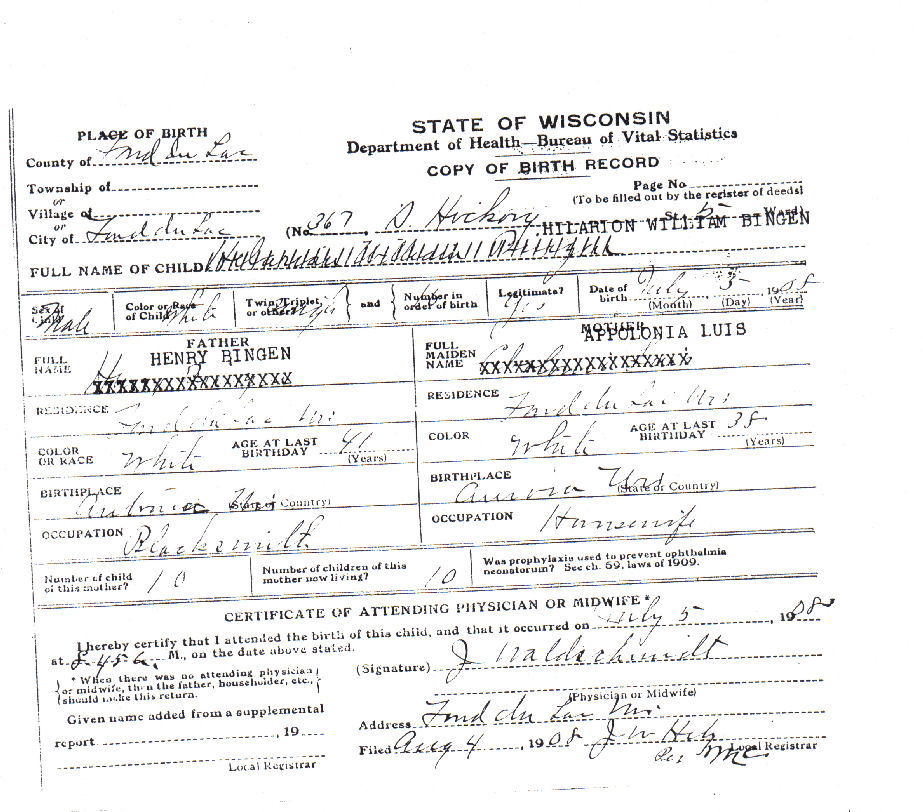 STATE OF WISCONSIN
Department of Health—Bureau of Vital Statistics
COPY OF BIRTH RECORD
PLACE OF BIRTH
County of Fond du Lac
Township of
or
Village of
or
City of Fond du Lac
Page No
(To be filled out by the register of deeds)
(No. 367, S Hickory St. 5 Ward)
HILARION WILLIAM BINGEN
FULL NAME OF CHILD
Sex of Child Male
Color or Race of Child White
Twin, Triplet, or other?
and
Number in order of birth
Legitimate? Yes
Date of birth July 5 1908
(Month) (Day) (Year)
FATHER
FULL NAME HENRY BINGEN
XXXXXXXXXXXXXXXXXX
RESIDENCE Fond du Lac Wis
COLOR OR RACE White
AGE AT LAST BIRTHDAY 41
(Years)
BIRTHPLACE
(State or Country)
OCCUPATION Blacksmith
MOTHER
FULL MAIDEN NAME APPOLONIA LUIS
XXXXXXXXXXXXXXXXXX
RESIDENCE Fond du Lac Wis
COLOR White
AGE AT LAST BIRTHDAY 38
(Years)
BIRTHPLACE Wis
(State or Country)
OCCUPATION Housewife
Number of child of this mother? 10
Number of children of this mother now living? 10
Was prophylaxis used to prevent ophthalmia neonatorum? See ch. 59, laws of 1909.
CERTIFICATE OF ATTENDING PHYSICIAN OR MIDWIFE*
I hereby certify that I attended the birth of this child, and that it occurred on July 5, 1908
at 8.45 a. M., on the date above stated.
* When there was no attending physician
or midwife, then the father, householder, etc.,
should make this return.
(Signature) J Waldschmidt
(Physician or Midwife)
Given name added from a supplemental
report , 19
Local Registrar
Address Fond du Lac Wis.
Filed Aug 4, 1908 J W
Local Registrar
Per